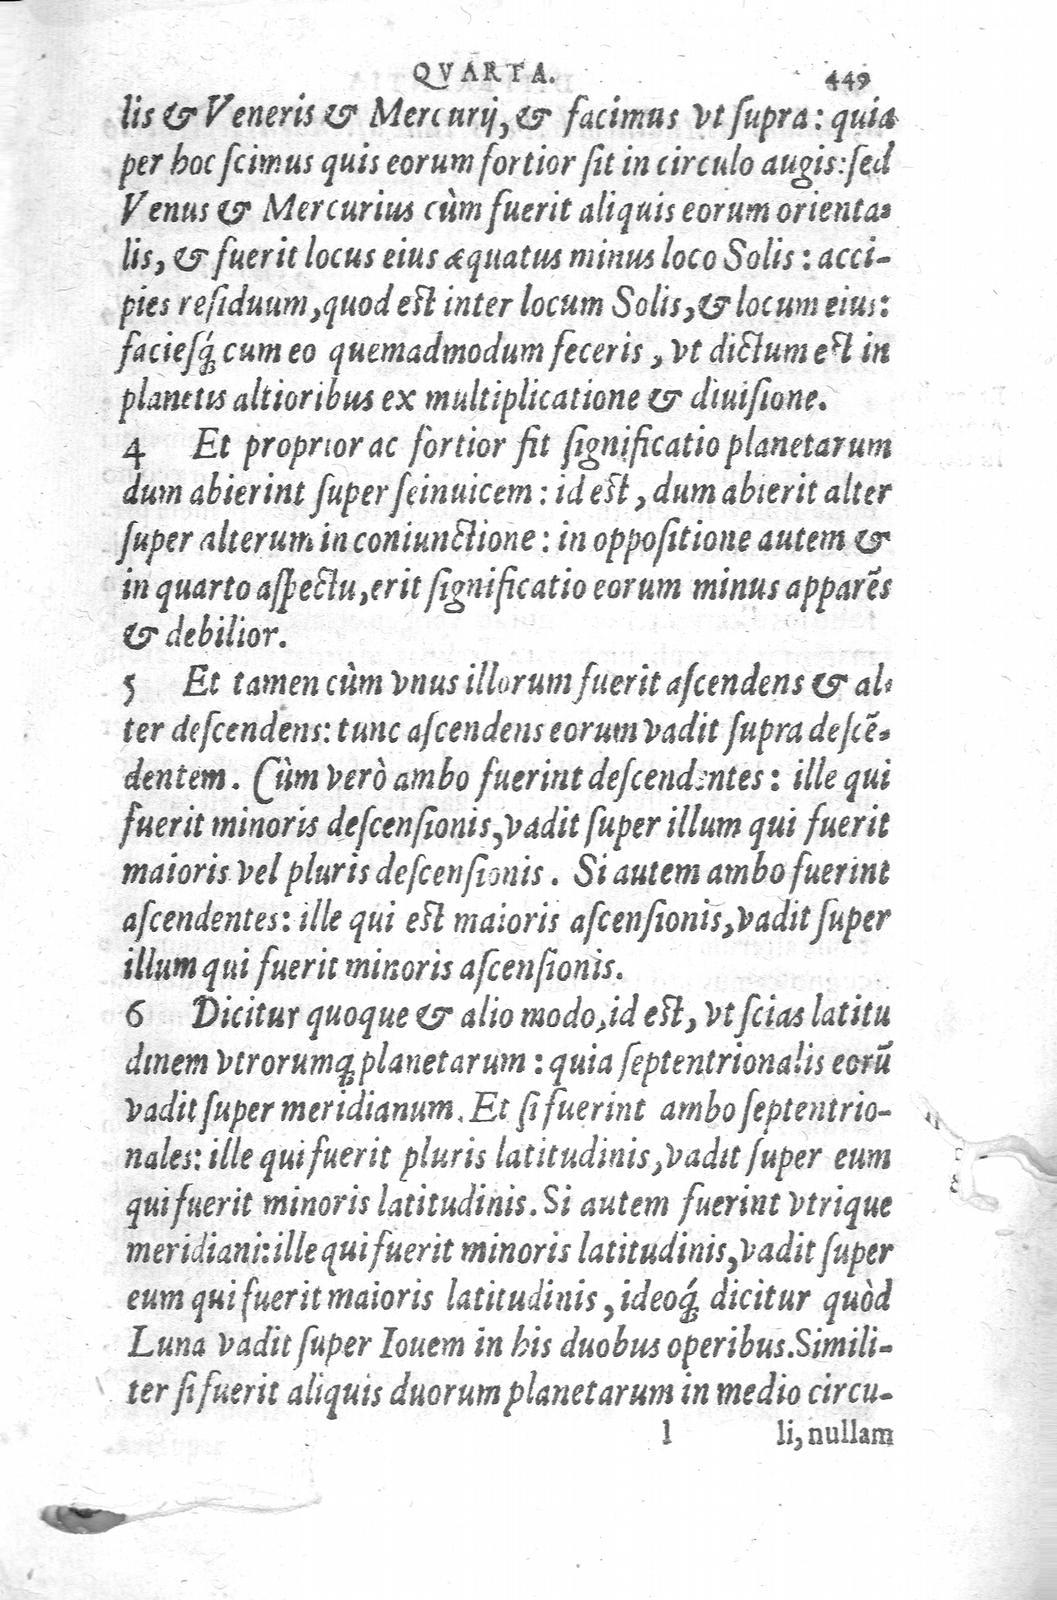 QVARTA. 449
lis & Veneris & Mercurij, & facimus vt ſupra: quia
per hoc ſcimus quis eorum fortior ſit in circulo augis: ſed
Venus & Mercurius cùm fuerit aliquis eorum orienta-
lis, & fuerit locus eius æquatus minus loco Solis: acci-
pies reſiduum, quod eſt inter locum Solis, & locum eius:
facieſq́; cum eo quemadmodum feceris, vt dictum eſt in
planetis altioribus ex multiplicatione & diuiſione.
4 Et proprior ac fortior fit ſignificatio planetarum
dum abierint ſuper ſeinuicem: id eſt, dum abierit alter
ſuper alterum in coniunctione: in oppoſitione autem &
in quarto aſpectu, erit ſignificatio eorum minus apparēs
& debilior.
5 Et tamen cùm vnus illorum fuerit aſcendens & al-
ter deſcendens: tunc aſcendens eorum vadit ſupra deſcē-
dentem. Cùm verò ambo fuerint deſcendentes: ille qui
fuerit minoris deſcenſionis, vadit ſuper illum qui fuerit
maioris vel pluris deſcenſionis. Si autem ambo fuerint
aſcendentes: ille qui eſt maioris aſcenſionis, vadit ſuper
illum qui fuerit minoris aſcenſionis.
6 Dicitur quoque & alio modo, id eſt, vt ſcias latitu
dinem vtrorumq; planetarum: quia ſeptentrionalis eorū
vadit ſuper meridianum. Et ſi fuerint ambo ſeptentrio-
nales: ille qui fuerit pluris latitudinis, vadit ſuper eum
qui fuerit minoris latitudinis. Si autem fuerint vtrique
meridiani: ille qui fuerit minoris latitudinis, vadit ſuper
eum qui fuerit maioris latitudinis, ideoq́; dicitur quòd
Luna vadit ſuper Iouem in his duobus operibus. Simili-
ter ſi fuerit aliquis duorum planetarum in medio circu-
l li, nullam